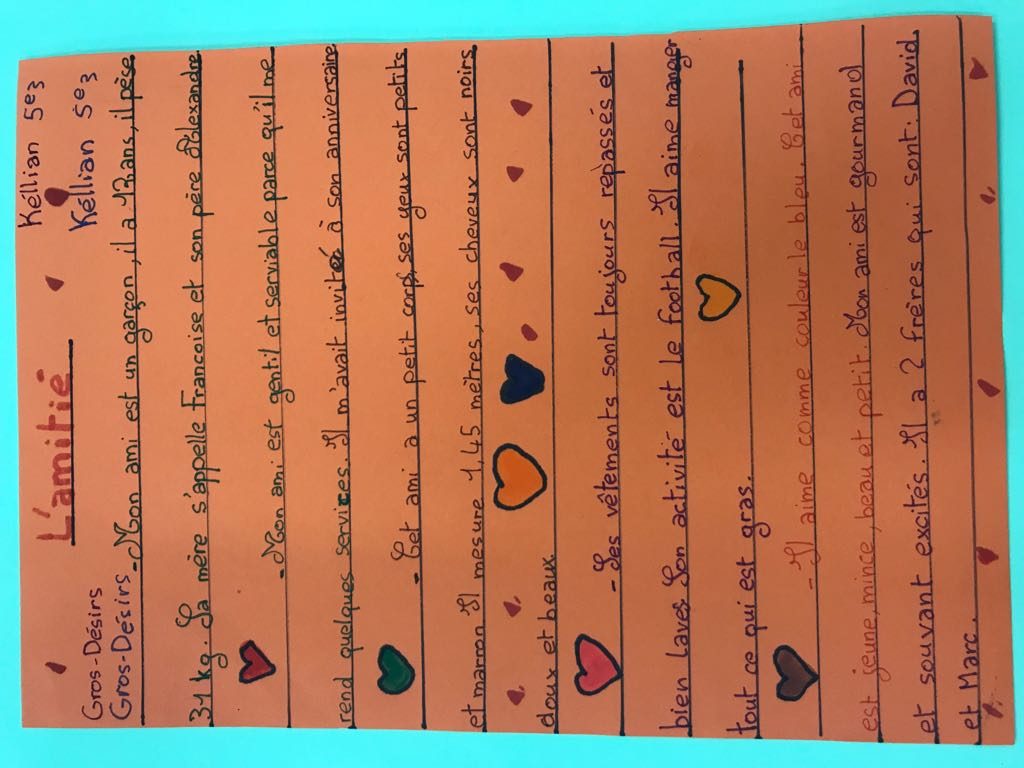 Kéllian 5e3
Gros-Désirs
L'amitié
Kéllian 5e3
Gros-Désirs
-Mon ami est un garçon, il a 13 ans, il pèse
31 kg. Sa mère s'appelle Francoise et son père Alexandre
-Mon ami est gentil et serviable parce qu'il me
rend quelques services. Il m'avait invité à son anniversaire
-Cet ami a un petit corps, ses yeux sont petits
et marron Il mesure 1,45 mètres, ses cheveux sont noirs
doux et beaux.
-Ses vêtements sont toujours repassés et
bien lavés Son activité est le football. Il aime manger
tout ce qui est gras.
-Il aime comme couleur le bleu. Cet ami
est jeune, mince, beau et petit. Mon ami est gourmand
et souvant excités. Il a 2 frères qui sont: David
et Marc.